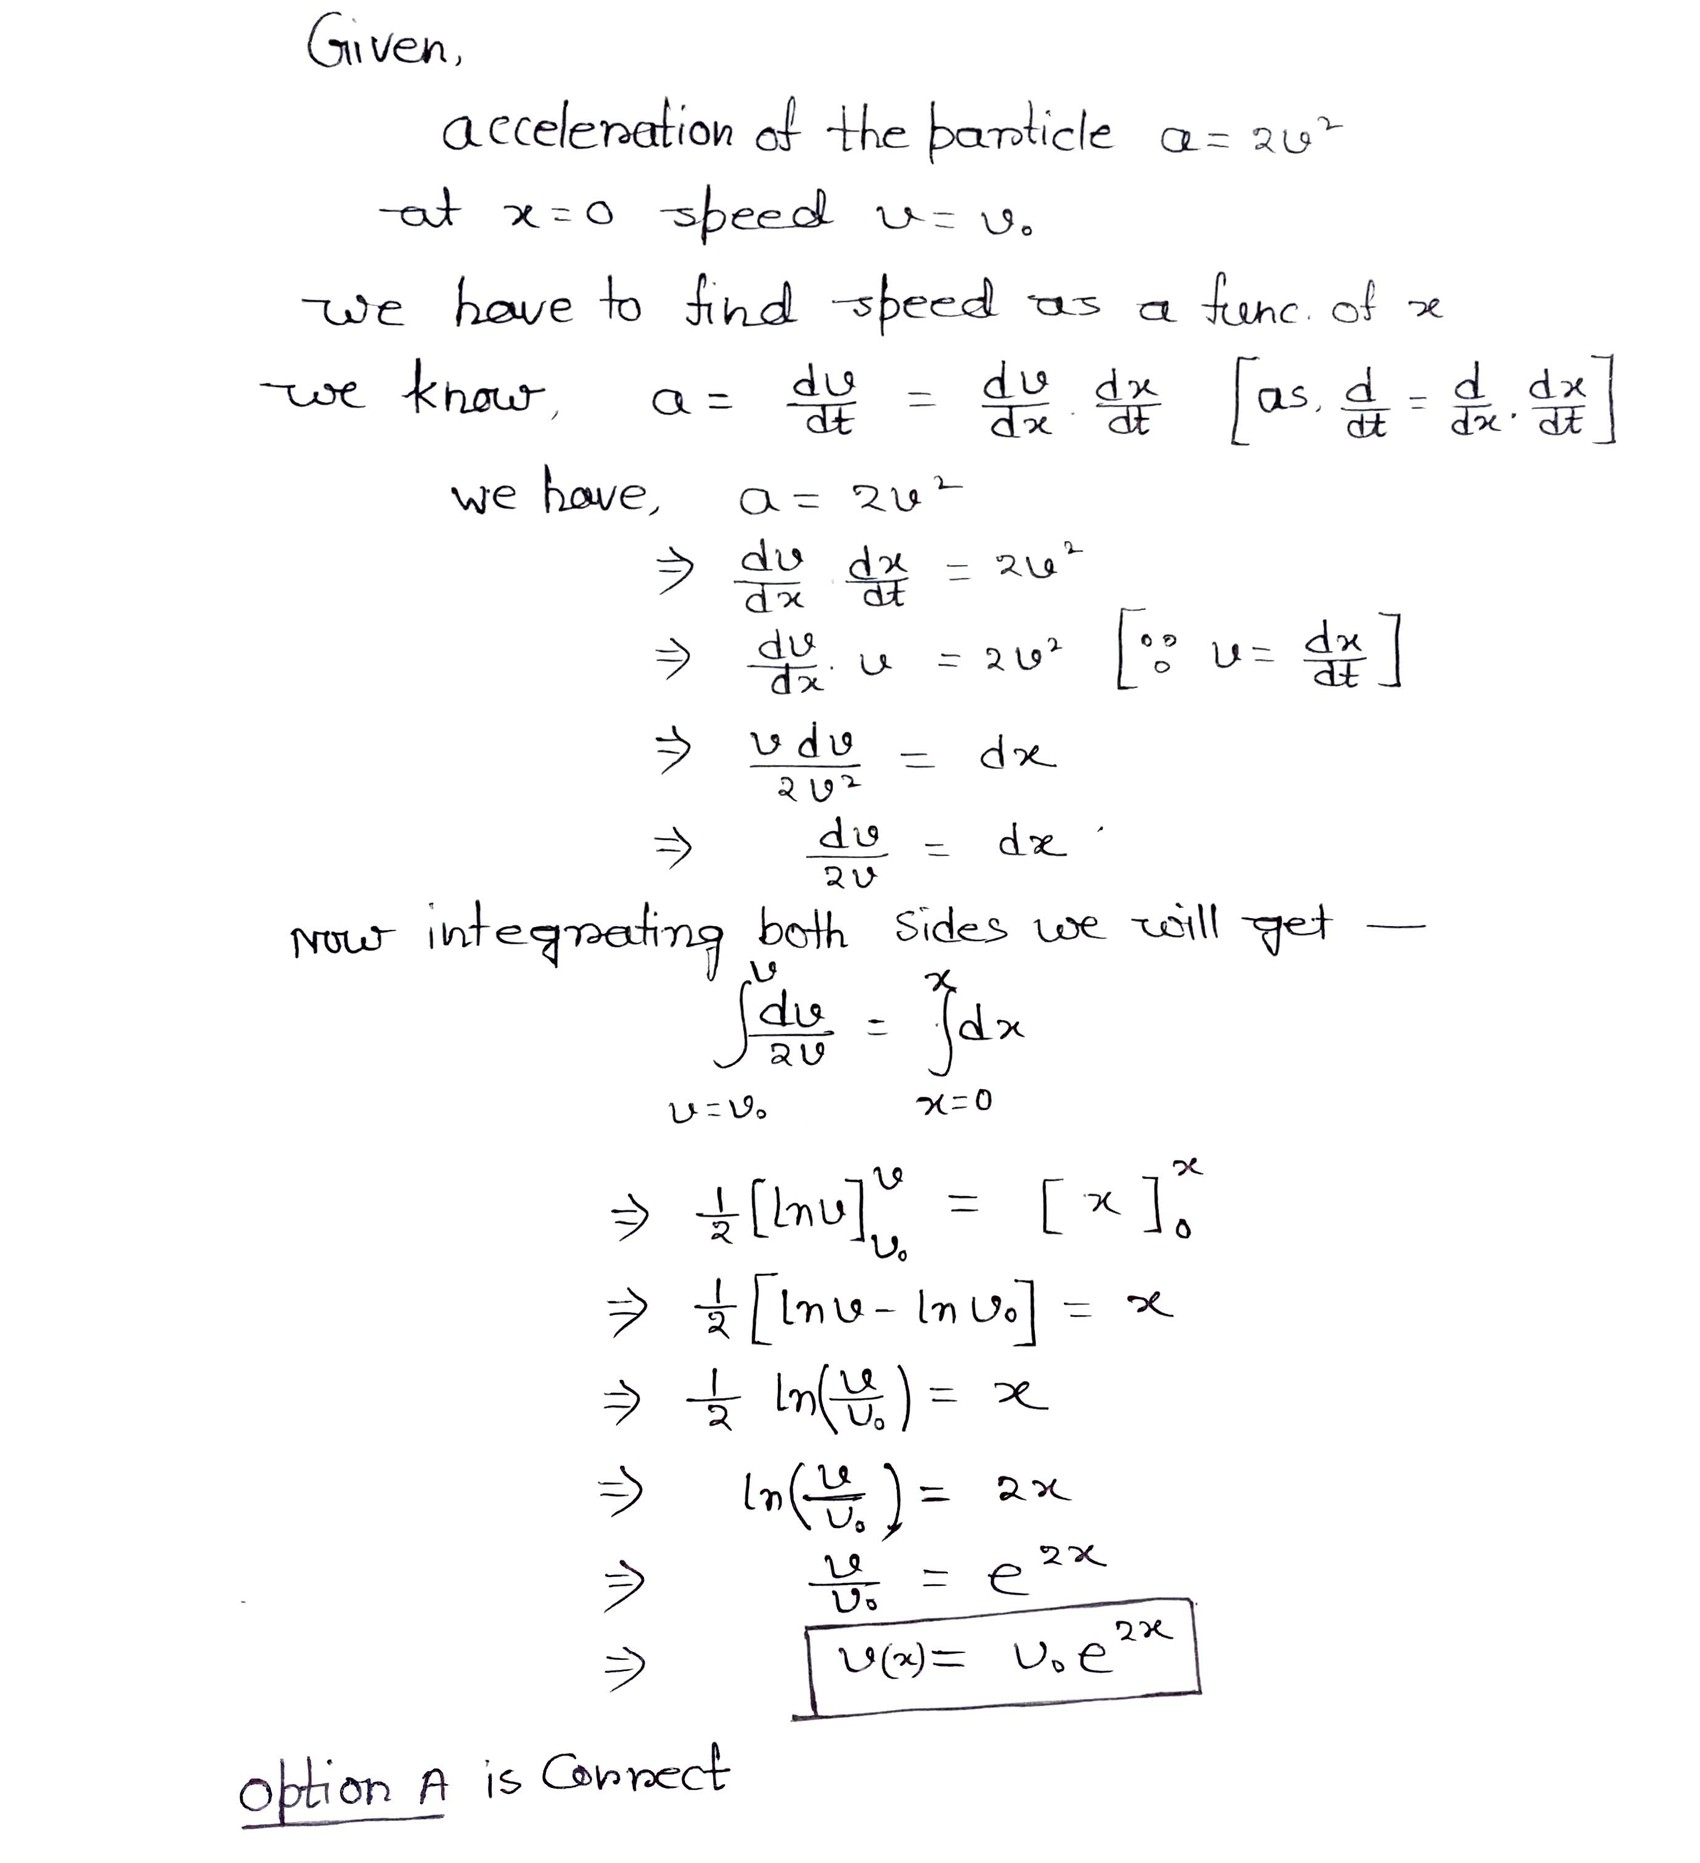 Given,
acceleration of the particle a = 2v²
at x = 0 speed v = v₀
we have to find speed as a func. of x
we know, a = dv/dt = dv/dx · dx/dt [as, d/dt = d/dx · dx/dt]
we have, a = 2v²
⇒ dv/dx · dx/dt = 2v²
⇒ dv/dx · v = 2v² [∵ v = dx/dt]
⇒ v dv/2v² = dx
⇒ dv/2v = dx
Now integrating both sides we will get —
∫_{v=v₀}^{v} dv/2v = ∫_{x=0}^{x} dx
⇒ 1/2 [ln v]_{v₀}^{v} = [x]_{0}^{x}
⇒ 1/2 [ln v - ln v₀] = x
⇒ 1/2 ln(v/v₀) = x
⇒ ln(v/v₀) = 2x
⇒ v/v₀ = e^{2x}
⇒ v(x) = v₀ e^{2x}
option A is Correct